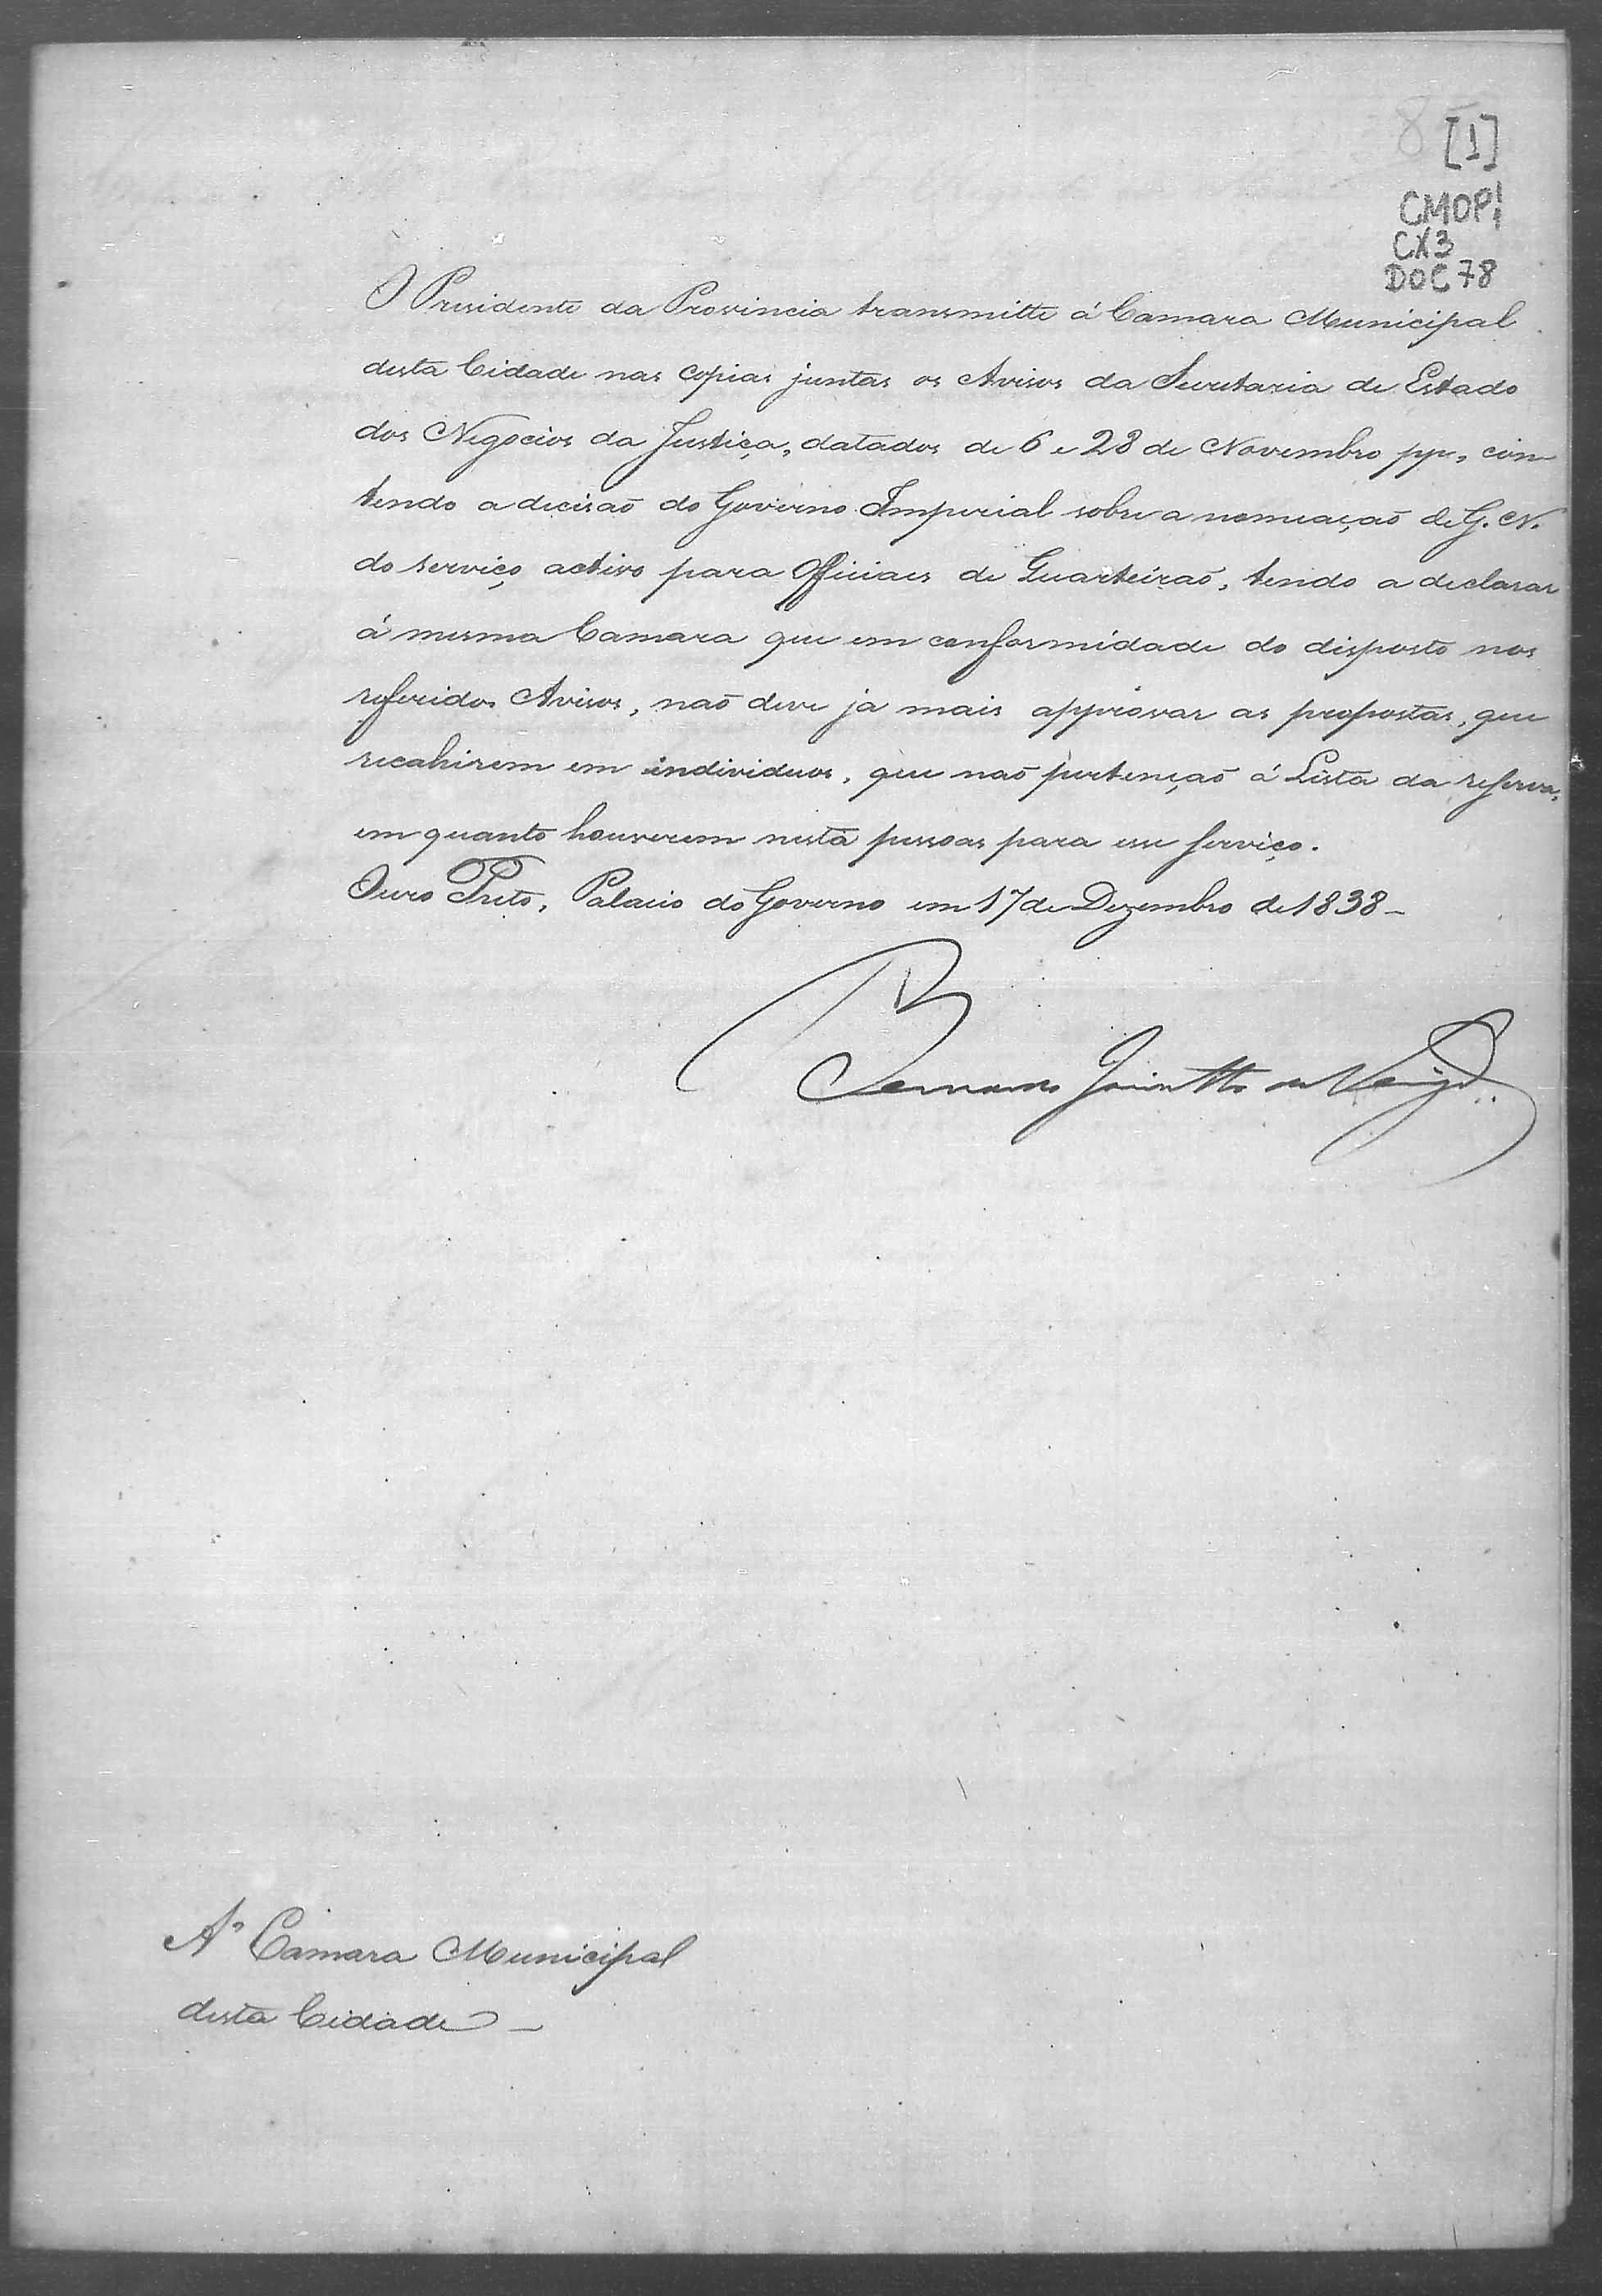 8 [1]
CMOP1
CX3
DOC 78
O Presidente da Provincia transmitte á Camara Municipal
desta Cidade nas copias juntas os Avisos da Secretaria de Estado
dos Negocios da Justiça, datados de 6 e 28 de Novembro pp., con
tendo a decisaõ do Governo Imperial sobre a nomeaçaõ de G. N.
do serviço activo para Officiaes de Quarteiraõ, tendo a declarar
á mesma Camara que em conformidade do disposto nos
referidos Avisos, naõ deve já mais approvar as propostas, que
recahirem em individuos, que naõ pertençaõ á Lista da reserva,
em quanto houverem nesta pessoas para esse serviço.
Ouro Preto, Palacio do Governo em 17 de Dezembro de 1838_
Bernardo Jacintho da Veiga
A' Camara Municipal
desta Cidade_